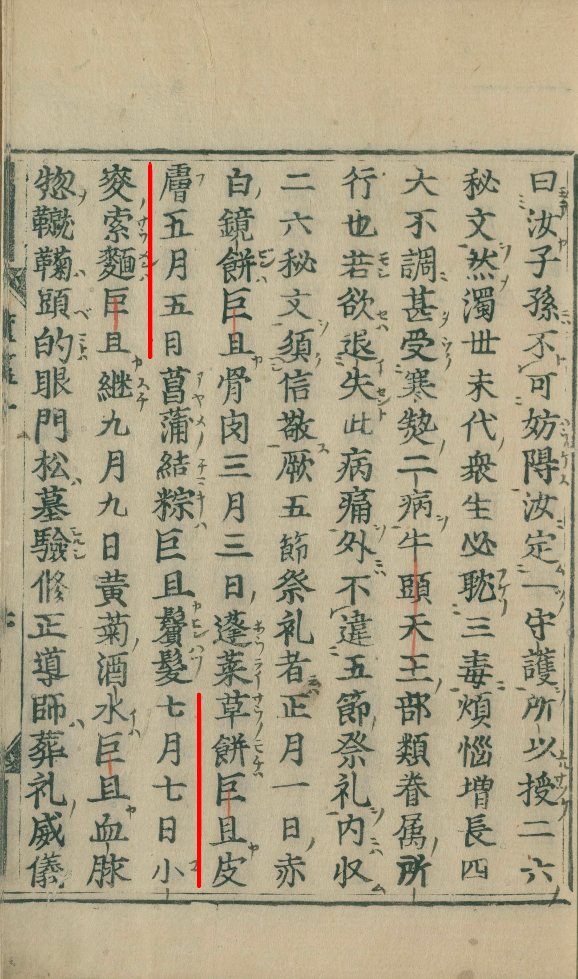 曰汝子孫不可妨碍汝定一守護所以授二六
秘文然濁世末代衆生必耽三毒煩惱増長四
大不調甚受寒熱二病牛頭天王部類眷属所
行也若欲退失此病痛外不違五節祭礼内収
二六秘文須信敬厥五節祭礼者正月一日赤
白鏡餅巨且骨肉三月三日蓬莱草餅巨且皮
膚五月五日菖蒲結粽巨且鬢髪七月七日小
麥索麵巨且継九月九日黄菊酒水巨且血脉
惣鞠頭的眼門松墓驗修正導師葬礼威儀